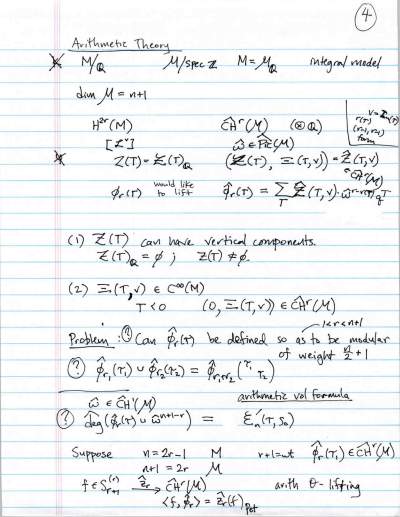 4
Arithmetic Theory
M/ℚ   𝓜/spec ℤ   M = 𝓜_ℚ   integral model
dim 𝓜 = n+1
H²ʳ(M)   ĈHʳ(𝓜)   (⊗ℚ)
ω̂ ∈ P̂ic(𝓜)
Z(T) = 𝒵(T)_ℚ   (𝒵(T), Ξ(T,v)) = Ẑ(T,v)
ĈHʳ(𝓜)
φ_r(τ)   would like to lift   φ̂_r(τ) = Σ_T Ẑ(T,v)·
(1) 𝒵(T) can have vertical components.
𝒵(T)_ℚ = ∅ ; 𝒵(T) ≠ ∅.
(2) Ξ(T,v) ∈ C^∞(M)
T < 0   (0, Ξ(T,v)) ∈ ĈHʳ(𝓜)
1<r≤n+1
Problem: ? Can φ̂_r(τ) be defined so as to be modular
of weight n/2 + 1
? φ̂_r₁(τ₁) ∪ φ̂_r₂(τ₂) = φ̂_r₁+r₂(τ₁ τ₂)
ω̂ ∈ ĈH¹(𝓜)   arithmetic vol formula
? d̂eg(φ̂_r(τ) ∪ ω̂ⁿ⁺¹⁻ʳ) = ℰ'_n(τ, s₀)
Suppose   n = 2r-1   M   r+1 = wt   φ̂_r(τ) ∈ ĈHʳ(𝓜)
n+1 = 2r   𝓜
f ∈ S_{r+1}^{(n)} → ĈHʳ(𝓜)   arith θ-lifting
⟨f, φ̂_r⟩ = ẑ_r(f) Pet